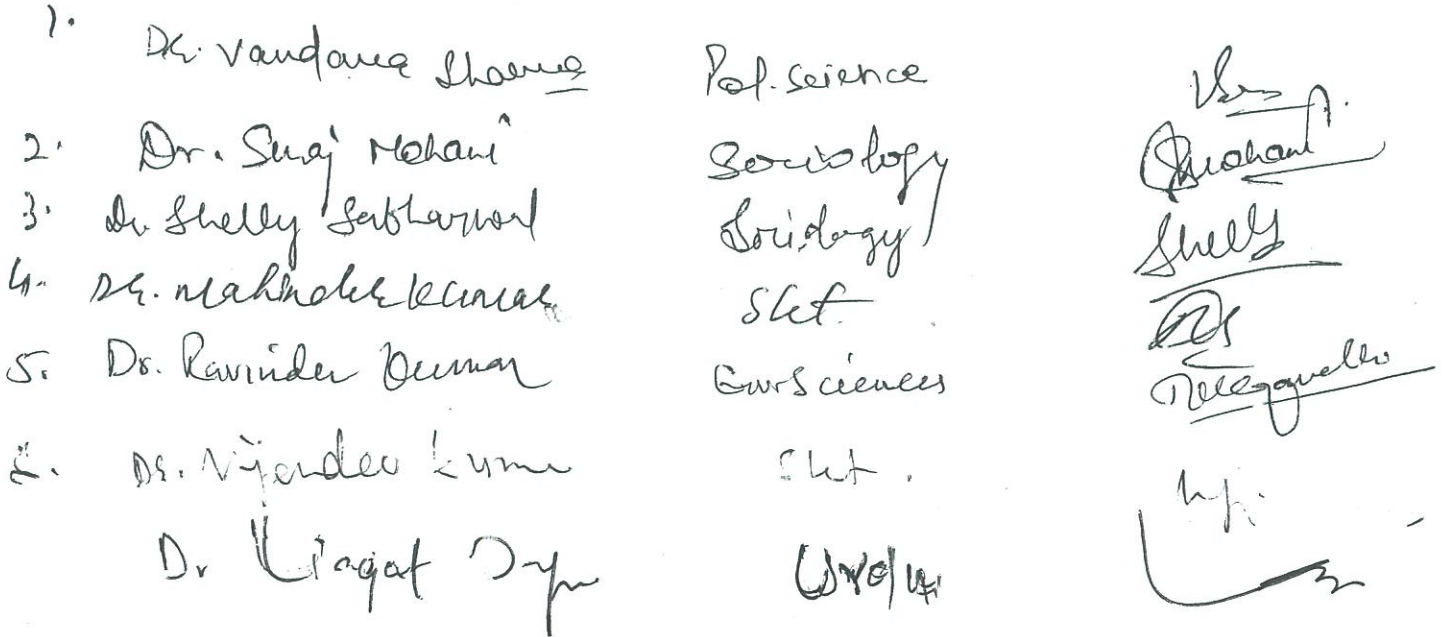 1. Dr. Vandana Sharma Pol. Science
2. Dr. Suraj Mohani Sociology
3. Dr. Shelly Sabharwal Sociology Shelly
4. Dr. Mahinder Kumar Skt.
5. Dr. Ravinder Kumar Env Sciences
6. Dr. Vijender Kumar Skt.
Dr Liaqat Urdu